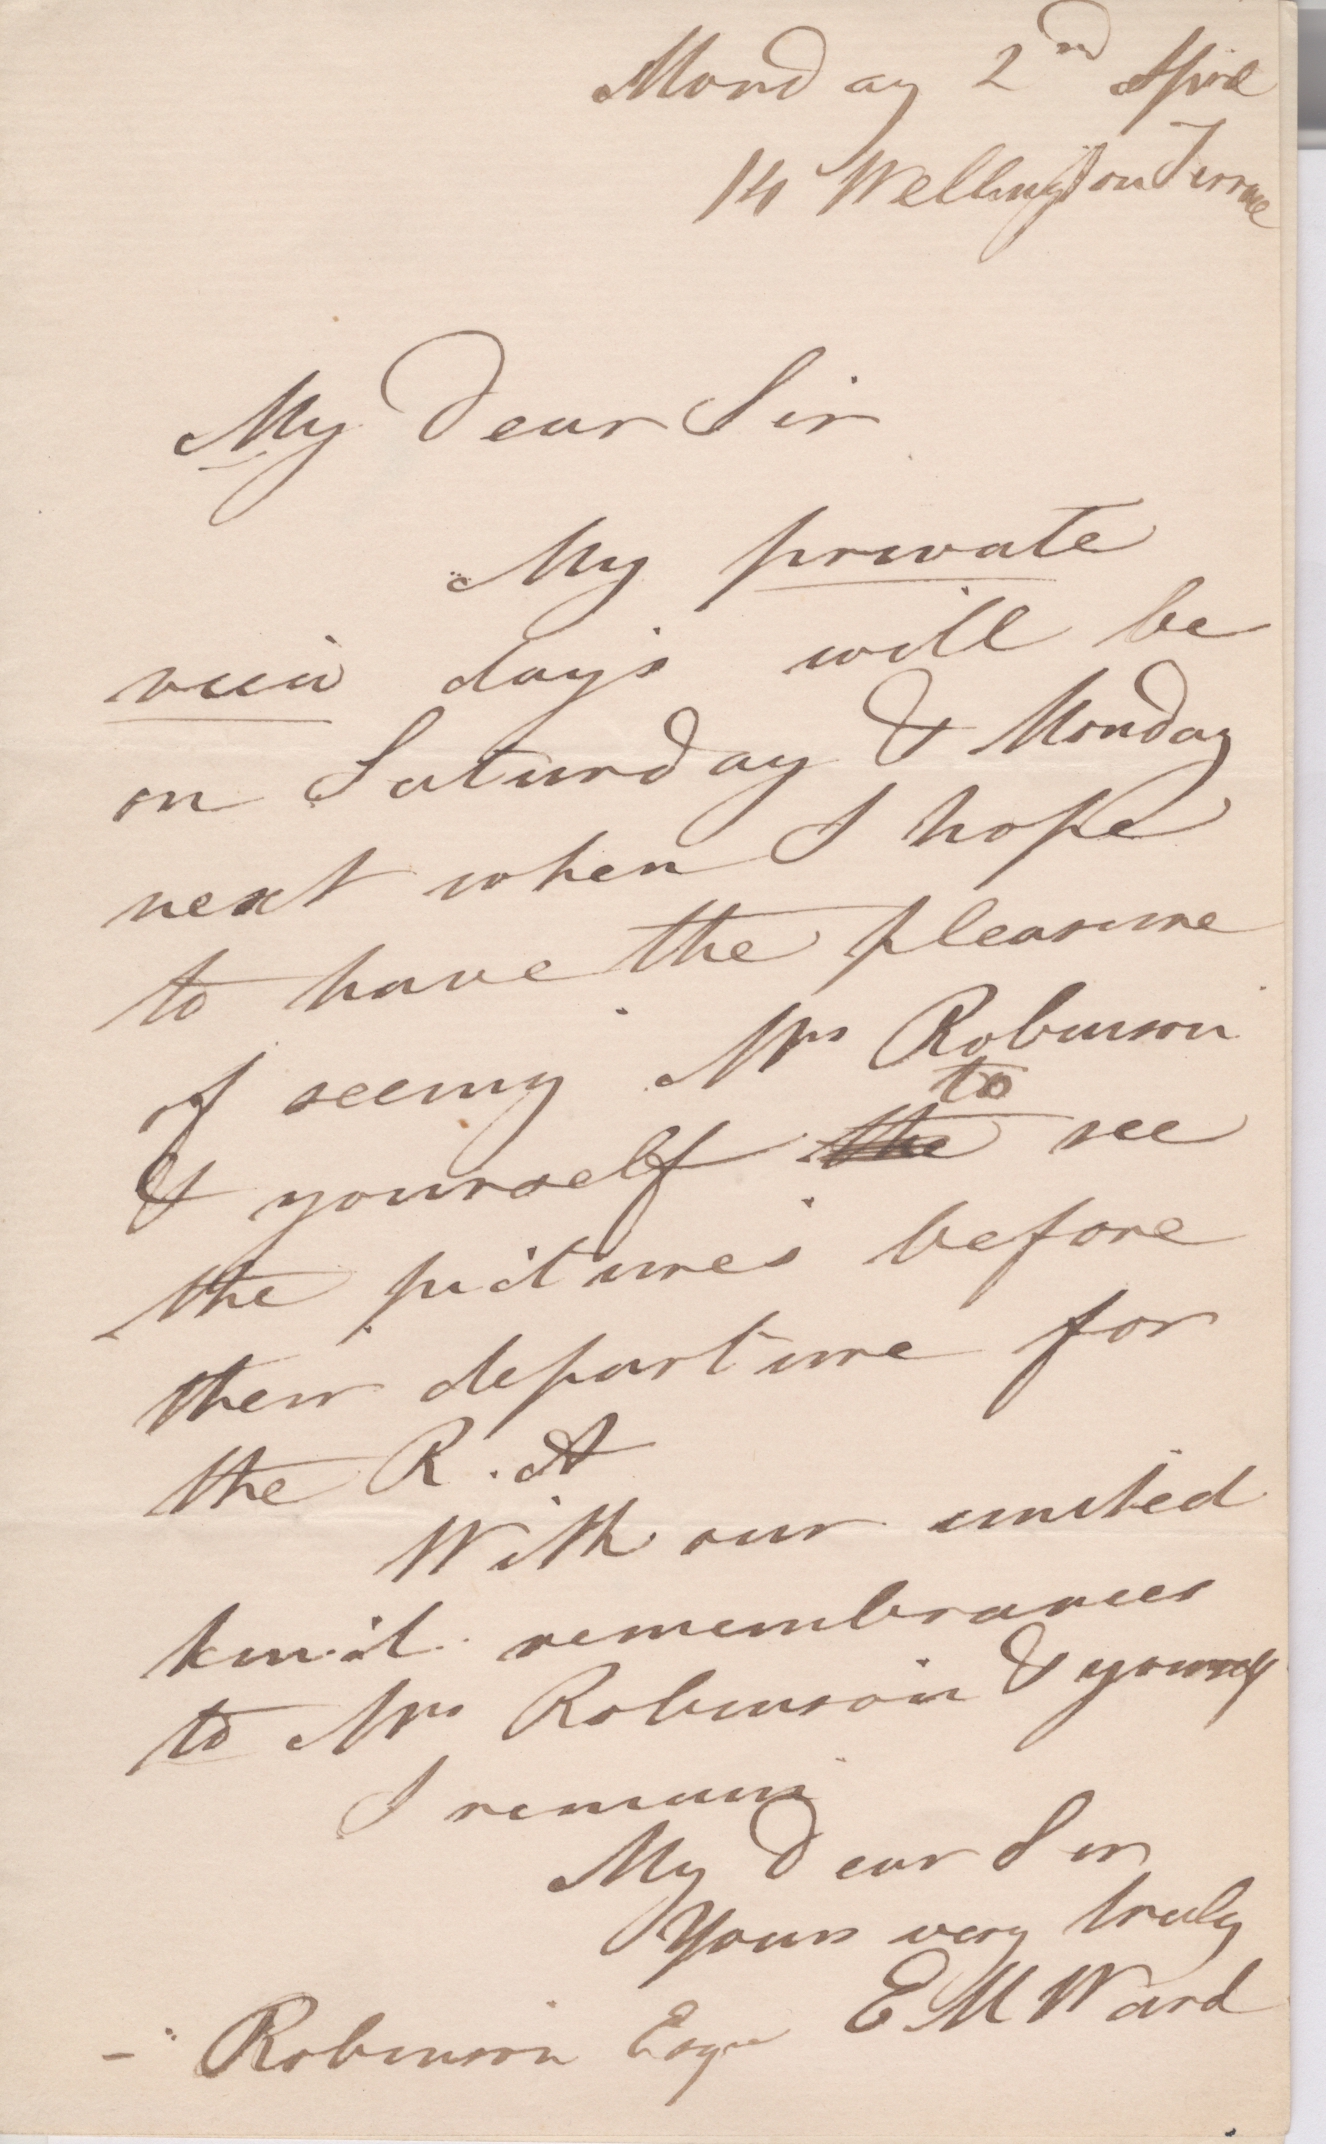 Monday 2nd April
14 Wellington Terrace
My Dear Sir
My private
view days will be
on Saturday & Monday
next when I hope
to have the pleasure
of seeing Mrs Robinson
to
& yourself the see
the pictures before
their departure for
the R. A
With our united
kind remembrances
to Mrs Robinson &
I remain
My Dear Sir
Yours very truly
E M Ward
– Robinson Esqre